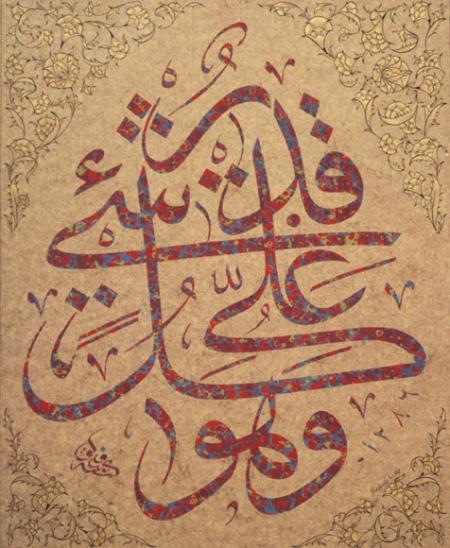 وهو على كل شيء قدير
١٢٨٦